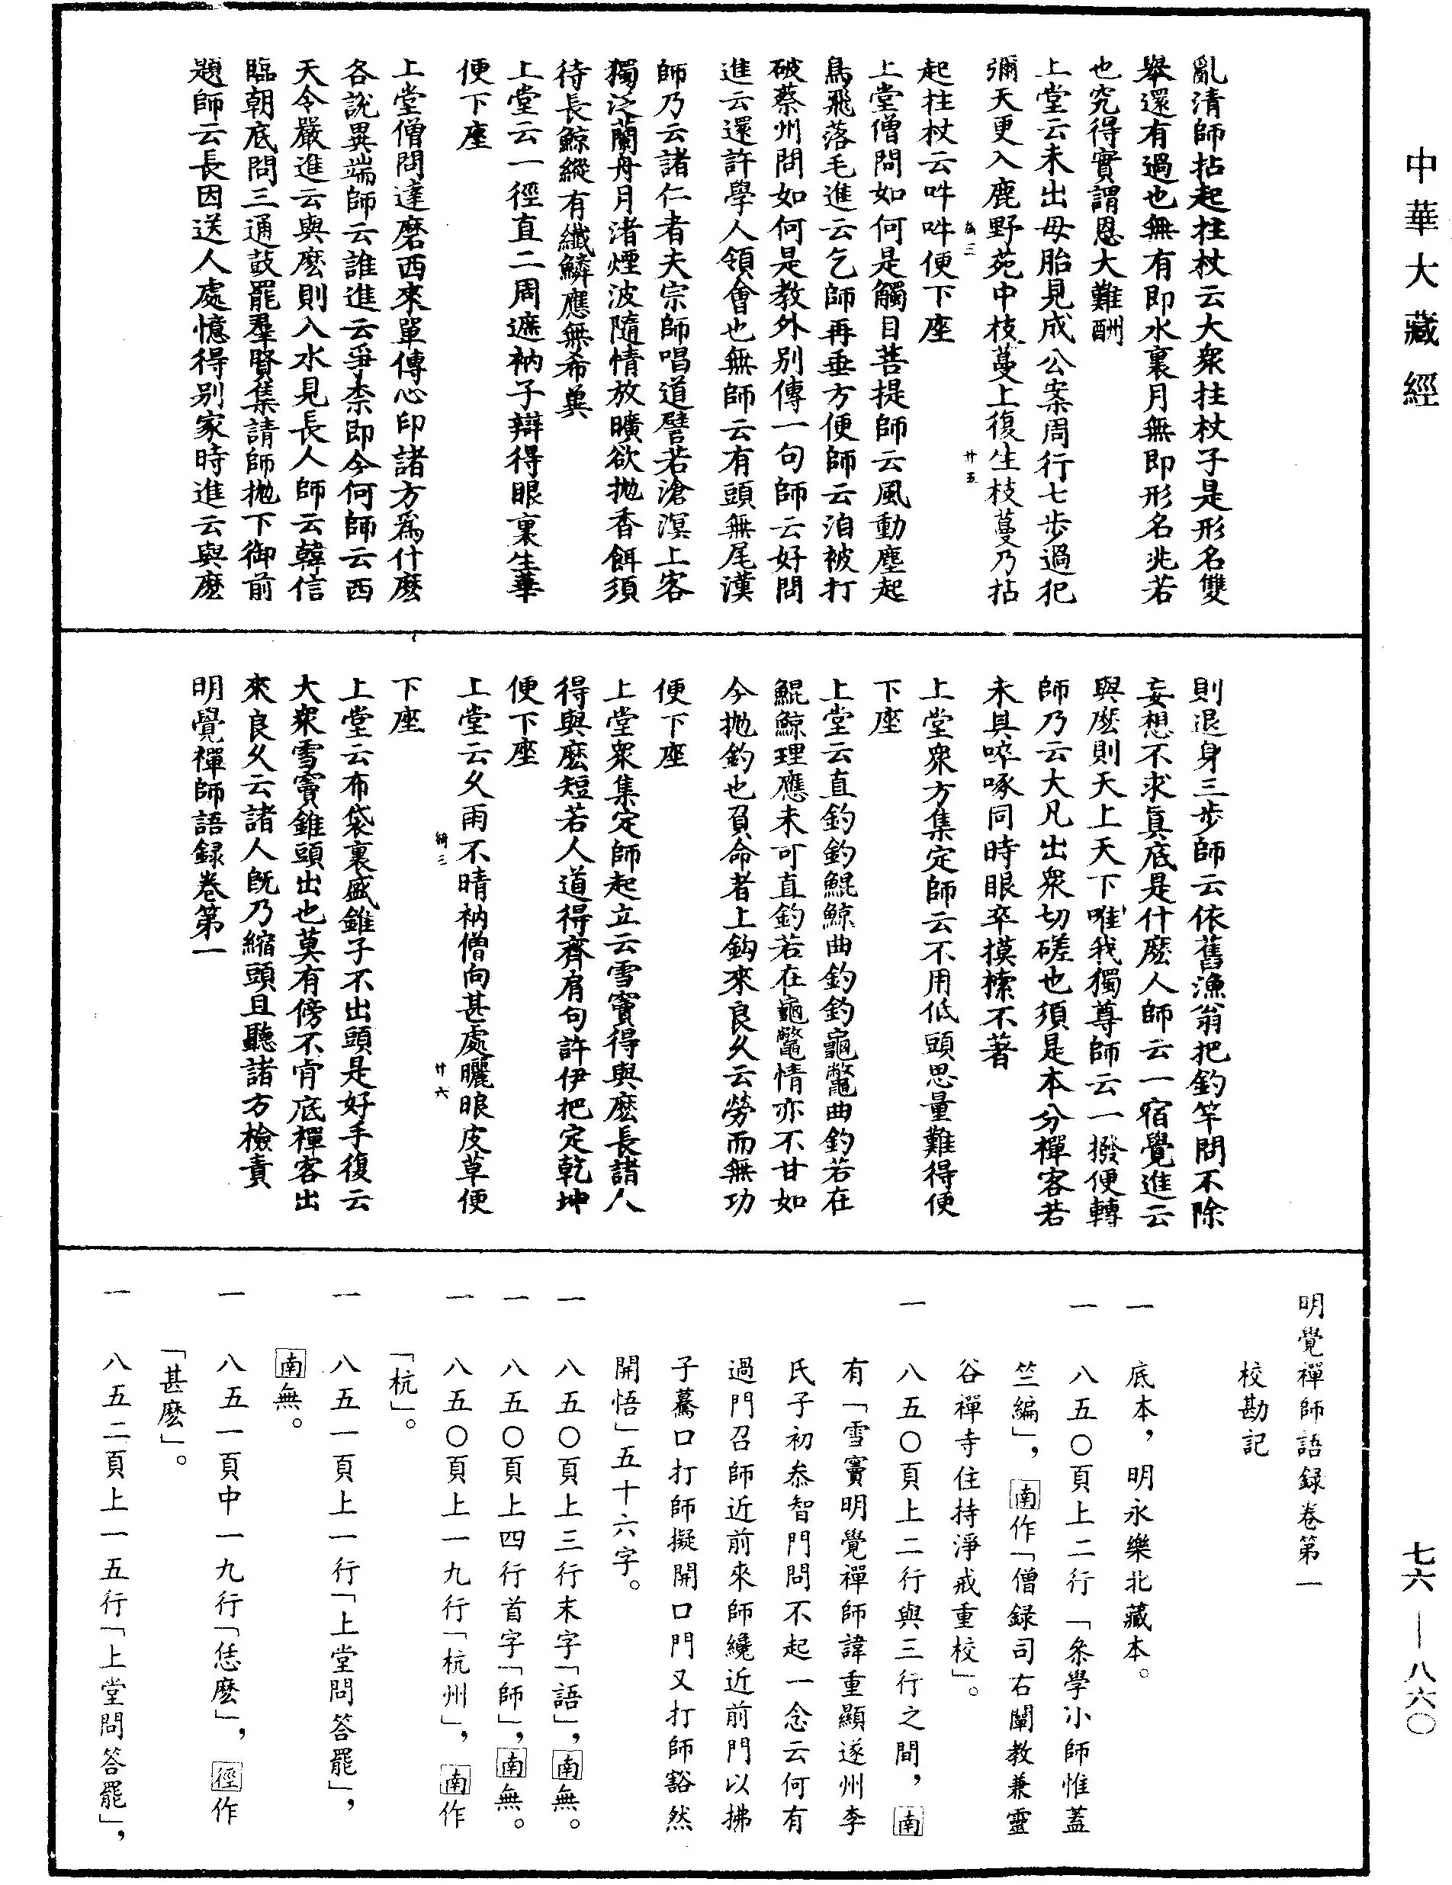 中華大藏經
亂清師拈起拄杖云大衆拄杖子是形名雙
舉還有過也無有即水裏月無即形名兆若
也究得實謂恩大難酬
上堂云未出母胎見成公案周行七步過犯
彌天更入鹿野苑中枝蔓上復生枝蔓乃拈
起拄杖云吽吽便下座
上堂僧問如何是觸目菩提師云風動塵起
鳥飛落毛進云乞師再垂方便師云洎被打
破蔡州問如何是教外別傳一句師云好問
進云還許學人領會也無師云有頭無尾漢
師乃云諸仁者夫宗師唱道譬若滄溟上客
獨泛蘭舟月渚煙波隨情放曠欲拋香餌須
待長鯨縱有纖鱗應無希兾
上堂云一徑直二周遮衲子辯得眼裏生華
便下座
上堂僧問達磨西來單傳心印諸方爲什麽
各說異端師云誰進云爭柰即今何師云西
天令嚴進云與麽則入水見長人師云韓信
臨朝底問三通鼓罷羣賢集請師拋下御前
題師云長因送人處憶得別家時進云與麽
則退身三步師云依舊漁翁把釣竿問不除
妄想不求真底是什麽人師云一宿覺進云
與麽則天上天下唯我獨尊師云一撥便轉
師乃云大凡出衆切磋也須是本分禪客若
未具啐啄同時眼卒摸𢱢不著
上堂衆方集定師云不用低頭思量難得便
下座
上堂云直釣釣鯤鯨曲釣釣龜鼈曲釣若在
鯤鯨理應未可直釣若在龜鼈情亦不甘如
今拋釣也負命者上鈎來良久云勞而無功
便下座
上堂衆集定師起立云雪竇得與麽長諸人
得與麽短若人道得齊肩句許伊把定乾坤
便下座
上堂云久雨不晴衲僧向甚處曬眼皮草便
下座
上堂云布袋裏盛錐子不出頭是好手復云
大衆雪竇錐頭出也莫有傍不肯底禪客出
來良久云諸人既乃縮頭且聽諸方檢責
明覺禪師語録卷第一
明覺禪師語録卷第一
校勘記
一 底本，明永樂北藏本。
一 八五〇頁上二行「叅學小師惟蓋
竺編」，南作「僧録司右闡教兼靈
谷禪寺住持淨戒重校」。
一 八五〇頁上二行與三行之間，南
有「雪竇明覺禪師諱重顯遂州李
氏子初叅智門問不起一念云何有
過門召師近前來師纔近前門以拂
子驀口打師擬開口門又打師豁然
開悟」五十六字。
一 八五〇頁上三行末字「語」，南無。
一 八五〇頁上四行首字「師」，南無。
一 八五〇頁上一九行「杭州」，南作
「杭」。
一 八五一頁上一行「上堂問答罷」，
南無。
一 八五一頁中一九行「恁麽」，徑作
「甚麽」。
一 八五二頁上一五行「上堂問答罷」，
七六—八六〇